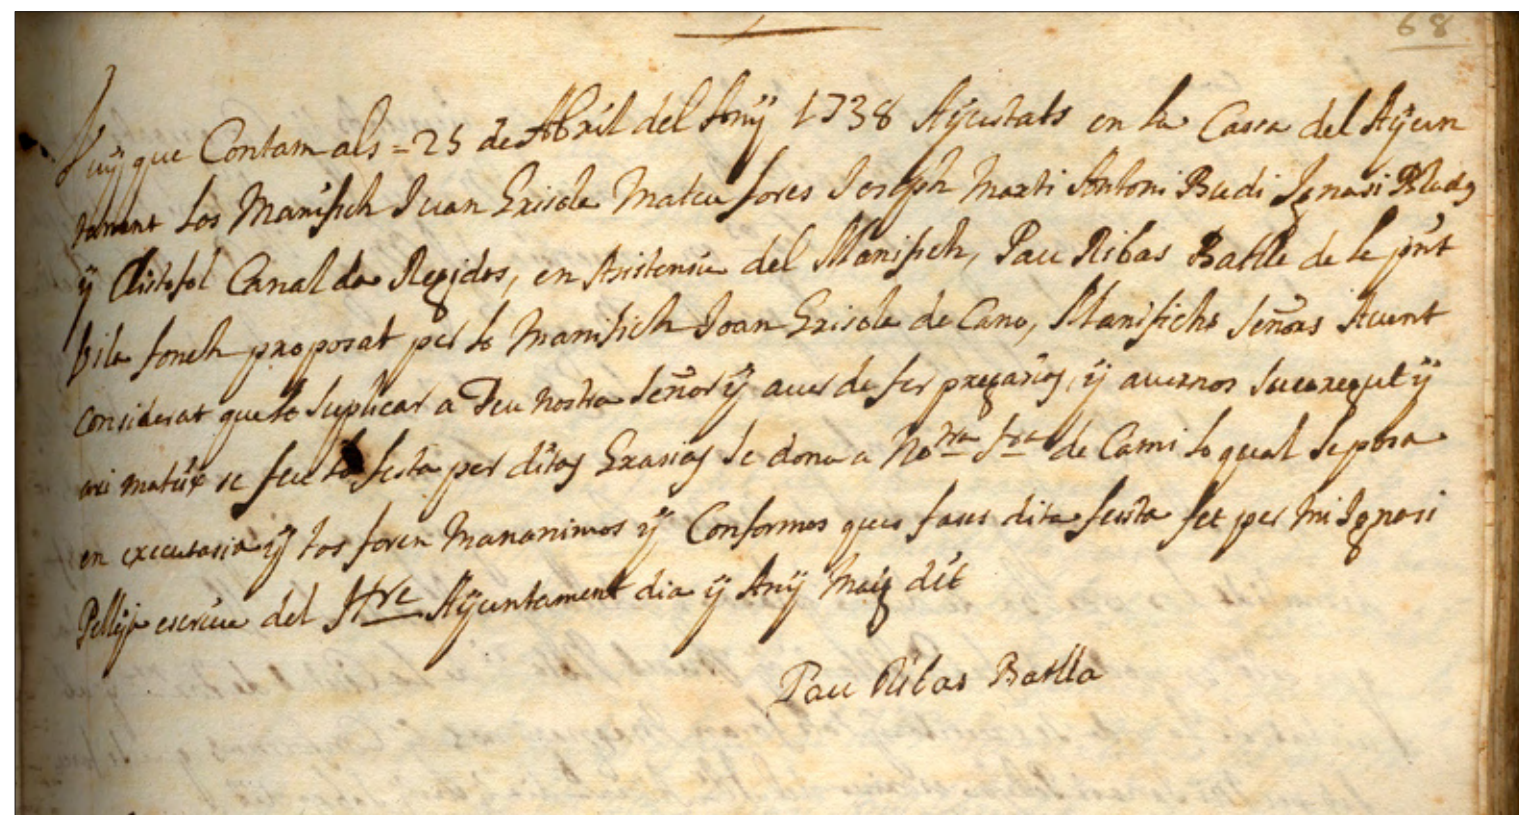 68
Vuÿ que Contam als = 25 de Abril del Anÿ 1738 Aÿustats en la Cassa del Aÿun
tament Los Manifich Juan Grisole Mateu fores Joseph Marti Antoni Budi Ignasi
ÿ Cristofol Canalda Regidos, en Asistensia del Manifich, Pau Ribas Batlle de le pnt
Vila fonch proposat per lo Manifich Joan Grisole de Cano, Manifichs Señors Avent
considerat que lo suplicar a Deu nostra Señor ÿ aver de fer pregarias, ÿ avernos socorregut ÿ
axi mateix se feu la festa per ditas Grasias se dona a Nostra Sra de Cami lo qual se posa
en executasia ÿ tos foren Mananimos ÿ Conformes ques fases dita festa fet per mi Ignasi
Pellija escriva del Iltre Aÿuntament dia ÿ Anÿ Maig dit
Pau Ribas Batlla